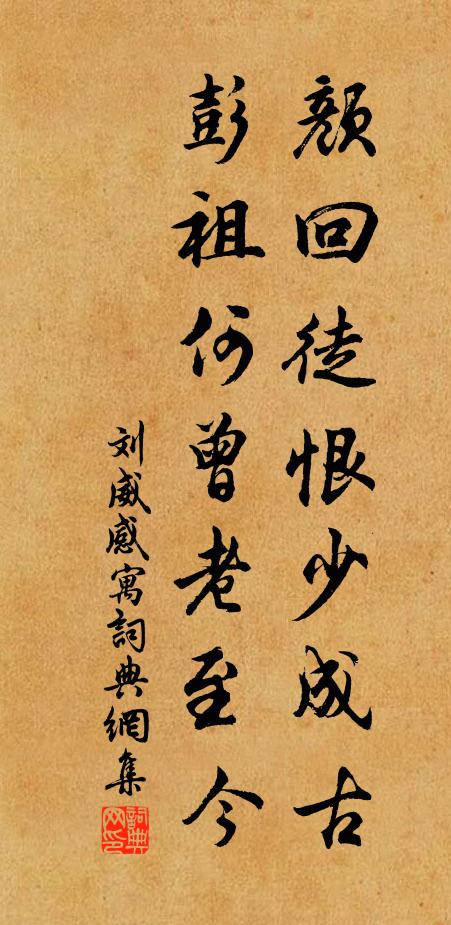 顔回徒恨少成古
彭祖何曾老至今
刘威感寓詞典網集
詞典网印